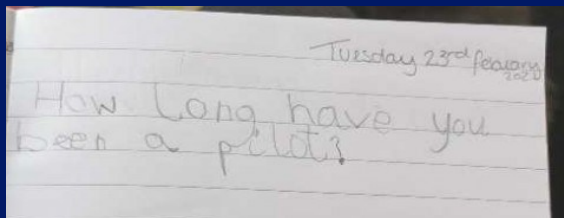 Tuesday 23rd feburary
How long have you
been a pilot?